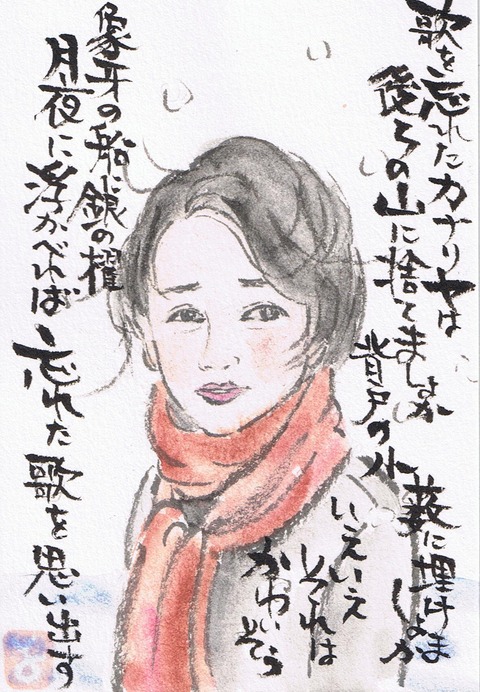 歌を忘れたカナリヤは
後ろの山に捨てましょか
背戸の小藪に埋けましょか
いえいえ
それは
かわいそう
象牙の船に銀の櫂
月夜に浮かべれば
忘れた歌を思い出す